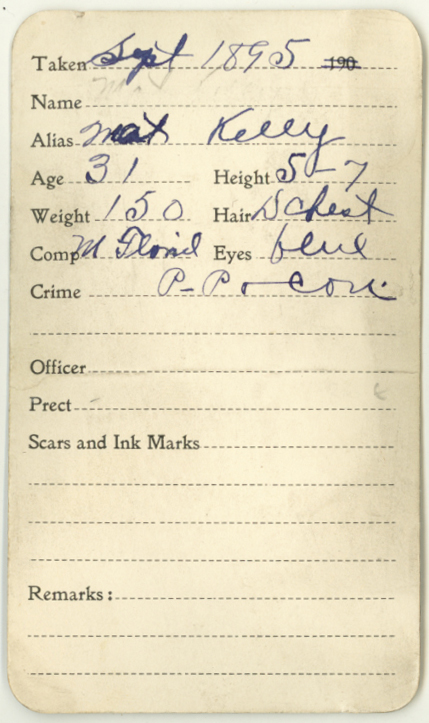 Taken Sept 1895 190
Name
Alias Mat Kelly
Age 31 Height 5-7
Weight 150 Hair D Chest
Comp M Florid Eyes blue
Crime P-P & Con.
Officer
Prect
Scars and Ink Marks
Remarks: